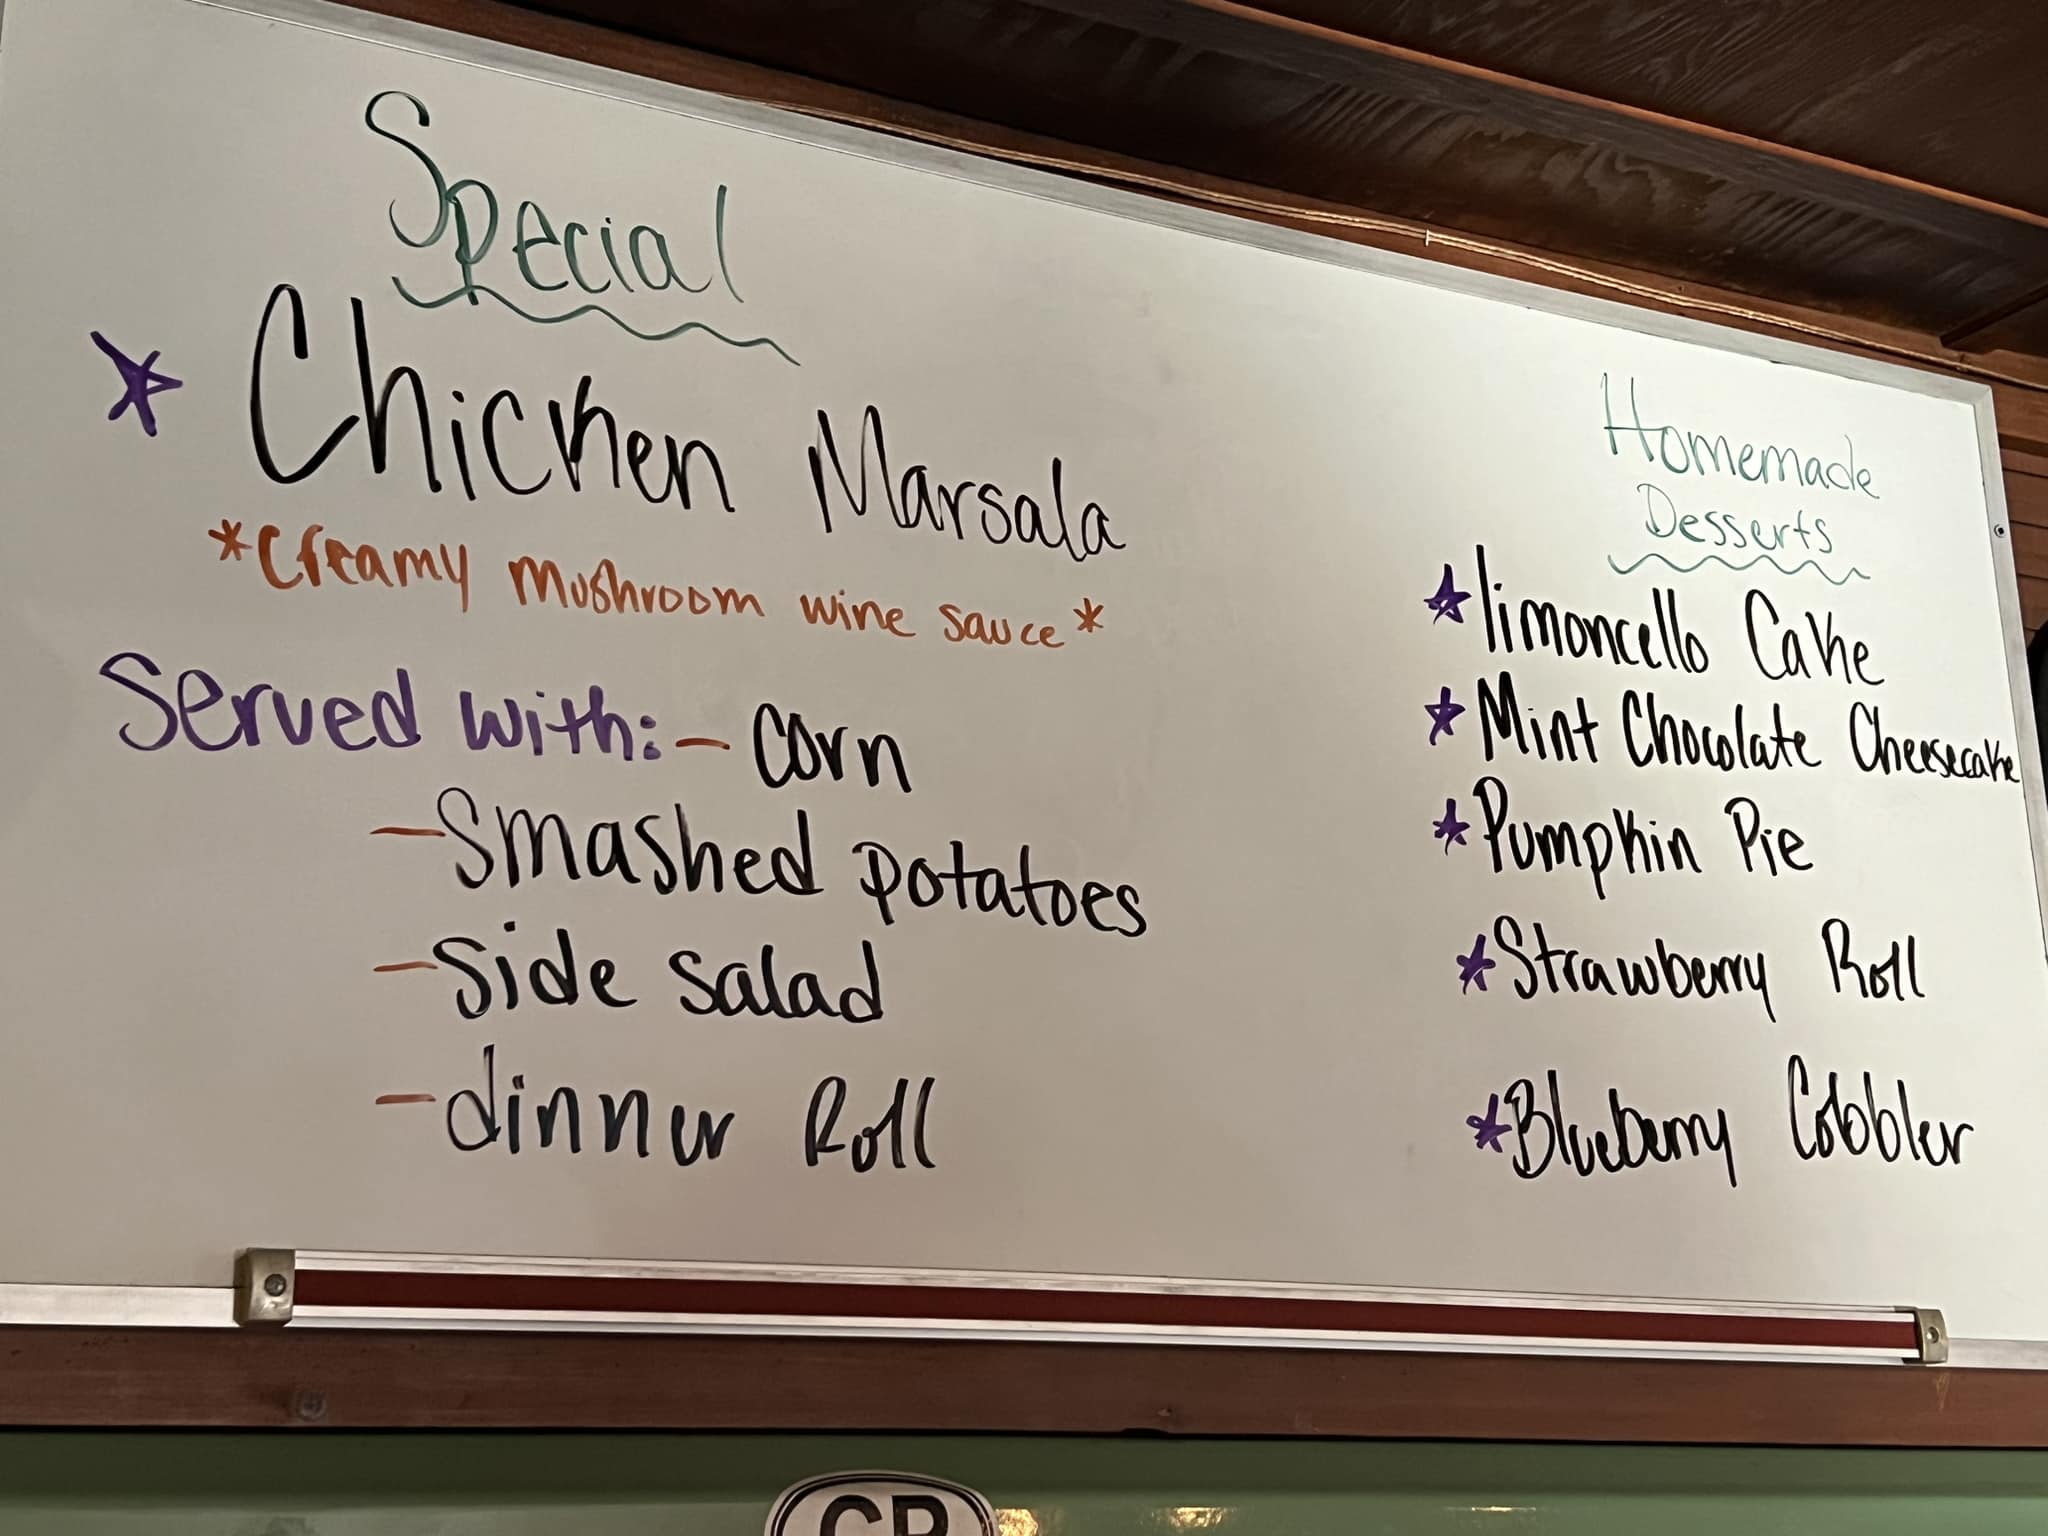 Special
Chicken Marsala
*Creamy mushroom wine sauce*
Served with: - Corn
- Smashed potatoes
- Side salad
- dinner Roll
Homemade
Desserts
limoncello Cake
Mint Chocolate Cheesecake
Pumpkin Pie
Strawberry Roll
Blueberry Cobbler